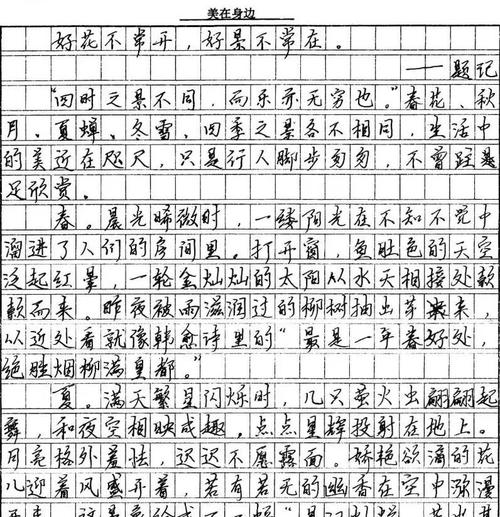 美在身边
好花不常开，好景不常在。
——题记
“四时之景不同，而乐亦无穷也。”春花、秋
月、夏蝉、冬雪、四季之景各不相同，生活中
的美近在咫尺，只是行人脚步匆匆，不曾
足欣赏。
春。晨光晞微时，一缕阳光在不知不觉中
溜进了人们的房间里。打开窗，鱼肚色的天空
泛起红晕，一轮金灿灿的太阳从水天相接处款
款而来。昨夜被雨滋润过的柳树抽出芽来，
从近处看就像韩愈诗里的“最是一年春好处，
绝胜烟柳满皇都。”
夏。满天繁星闪烁时，几只萤火虫翩翩起
舞，和夜空相映成趣，点点星辉投射在地上。
月亮格外羞怯，迟迟不愿露面。娇艳欲滴的花
儿迎着风盛开着，若有若无的幽香在空中弥漫